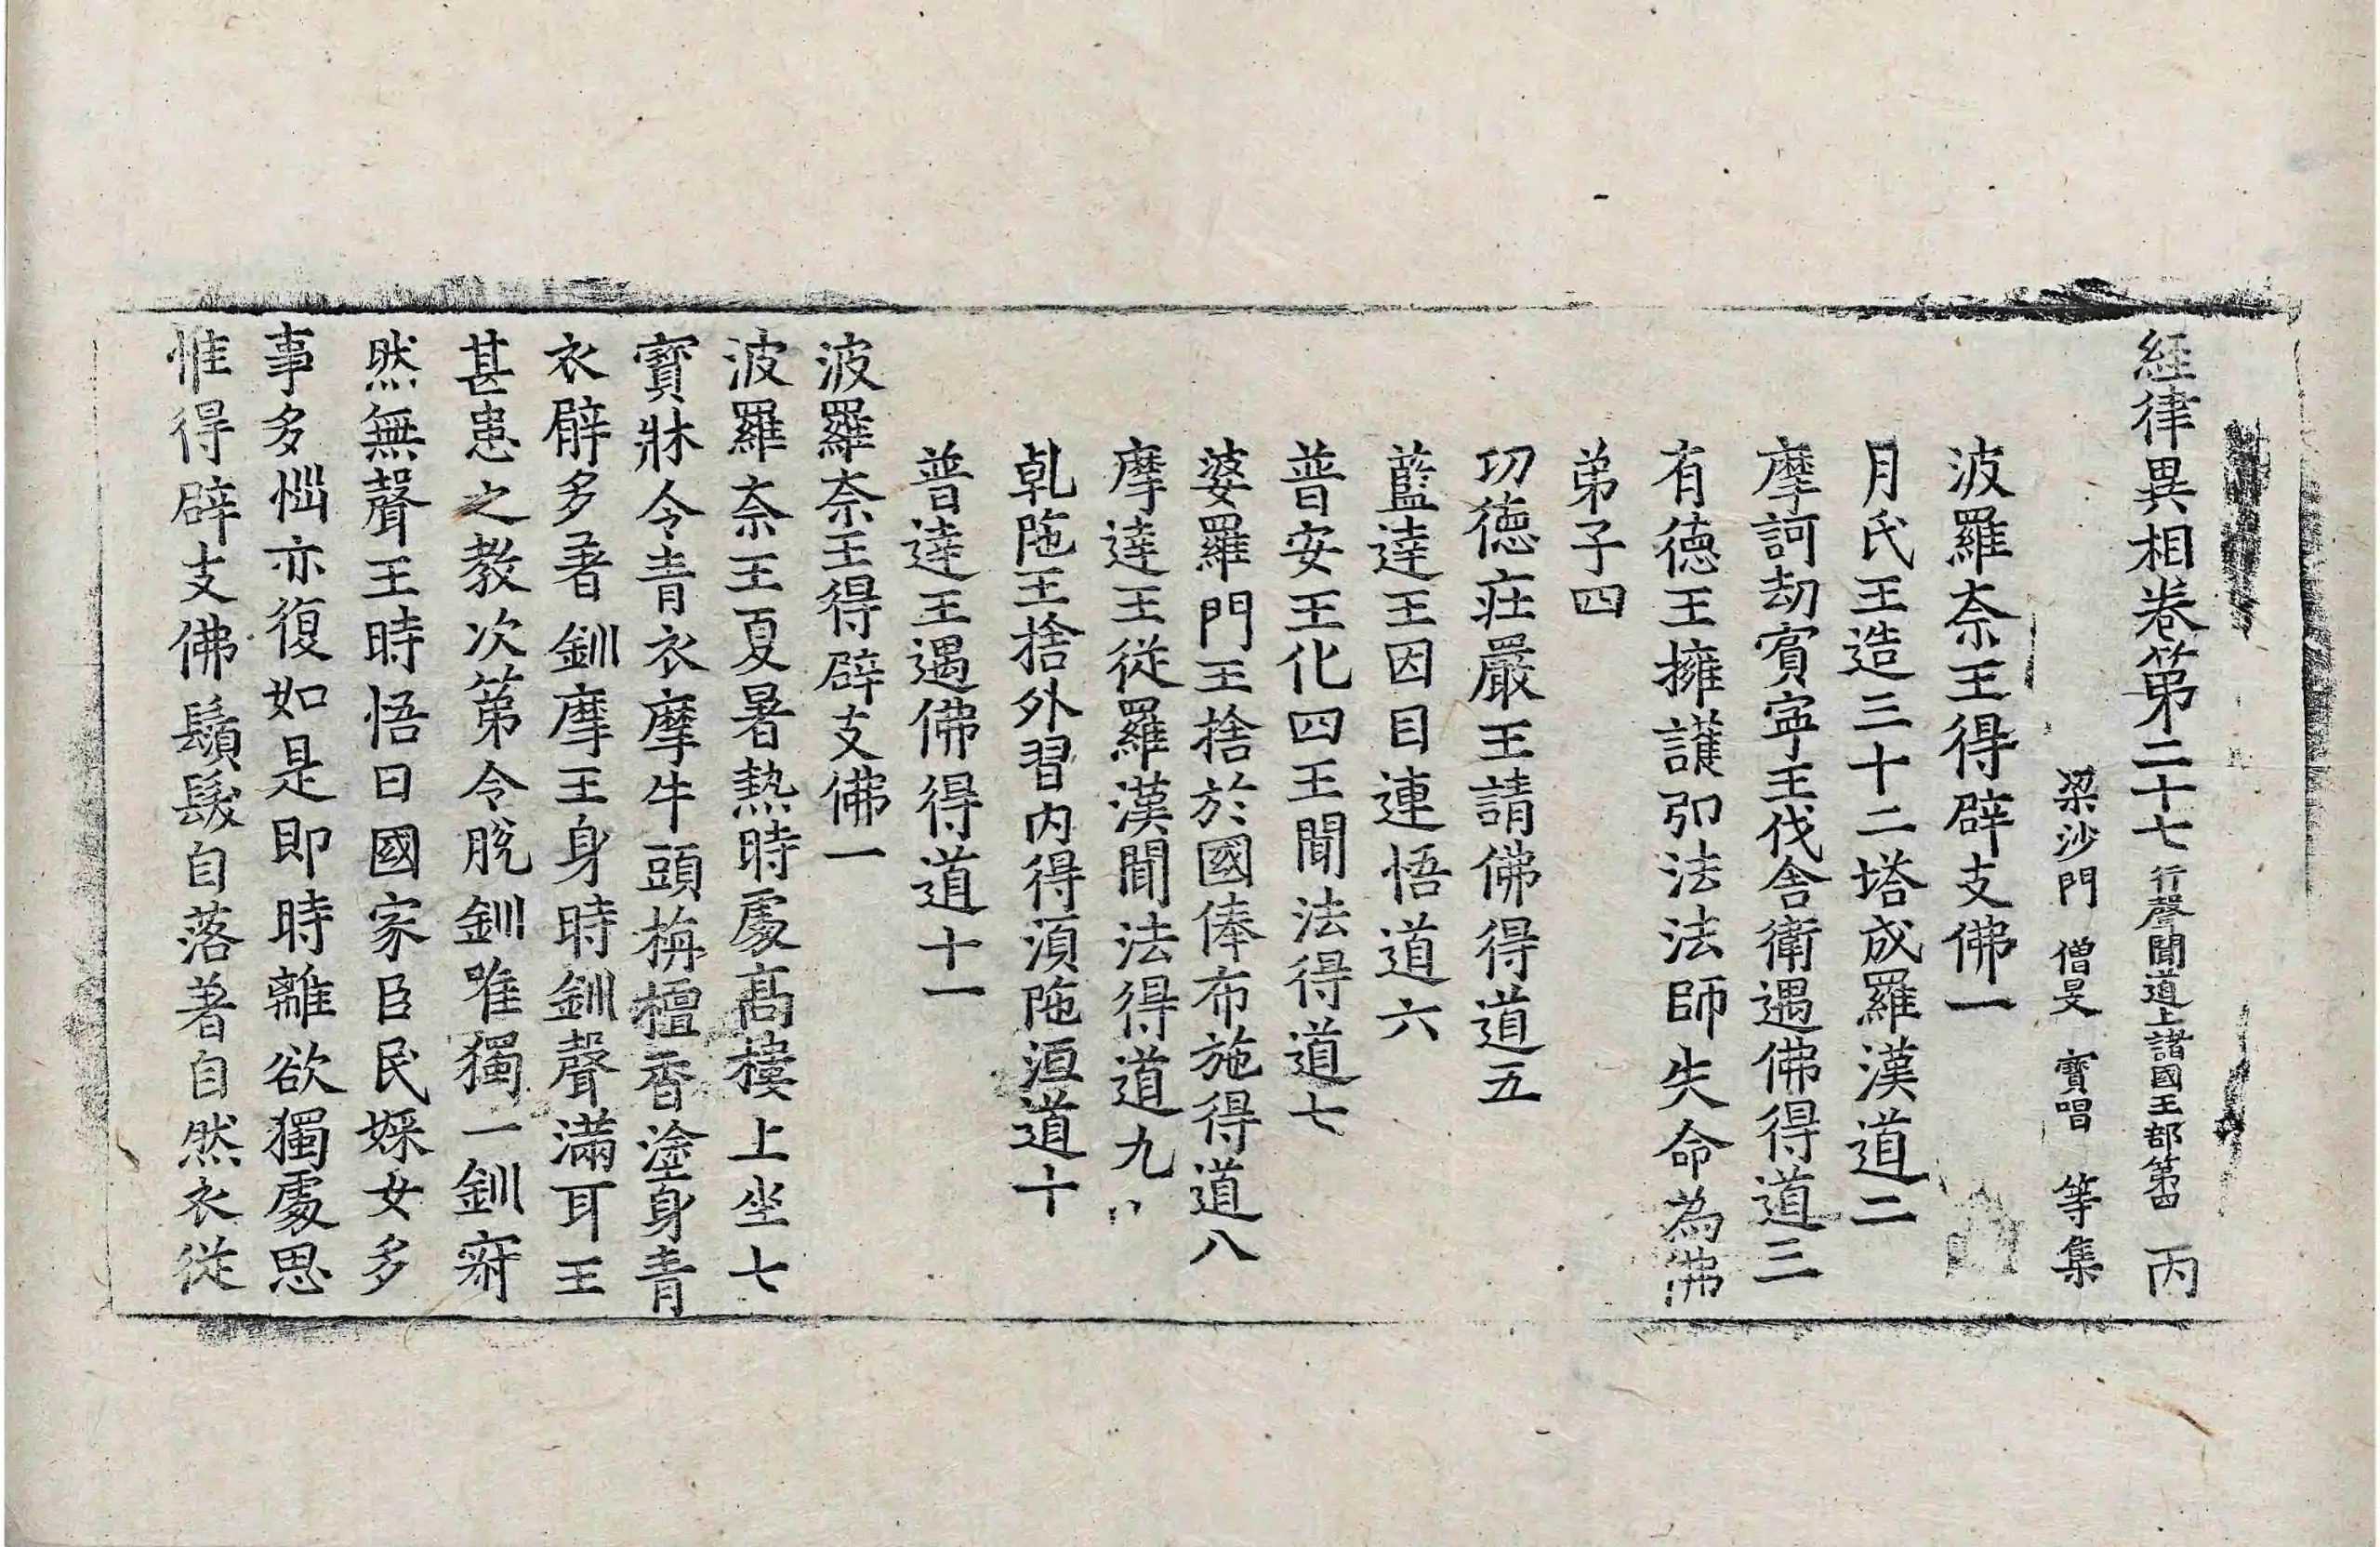 経律異相卷第二十七 行聲聞道上諸國王部第四 丙
梁沙門 僧旻 寶唱 等集
波羅奈王得辟支佛一
月氏王造三十二塔成羅漢道二
摩訶劫賓寧王伐舎衛遇佛得道三
有徳王擁護弘法法師失命為佛
弟子四
功徳莊嚴王請佛得道五
藍達王因目連悟道六
普安王化四王聞法得道七
婆羅門王捨於國俸布施得道八
摩達王從羅漢聞法得道九
乹陁王捨外習内得湏陁洹道十
普達王遇佛得道十一
波羅奈王得辟支佛一
波羅奈王夏暑熱時處髙樓上坐七
寳牀令青衣摩牛頭栴檀香塗身青
衣臂多著釧摩王身時釧聲滿耳王
甚患之教次第令脫釧唯獨一釧寂
然無聲王時悟曰國家臣民婇女多
事多惱亦復如是即時離欲獨處思
惟得辟支佛鬚髮自落著自然衣從